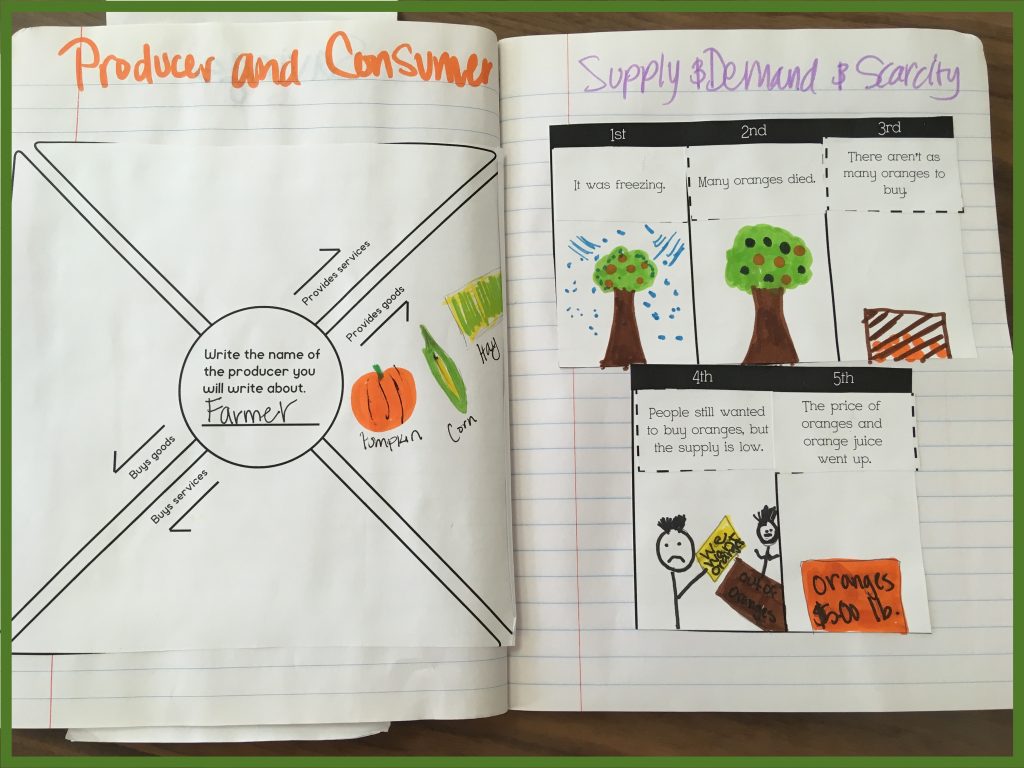 Producer and Consumer
Provides services
Provides goods
Write the name of
the producer you
will write about.
Farmer
Buys goods
Buys services
Pumpkin
Corn
Hay
Supply & Demand & Scarcity
1st
2nd
3rd
It was freezing.
Many oranges died.
There aren't as
many oranges to
buy.
4th
5th
People still wanted
to buy oranges, but
the supply is low.
The price of
oranges and
orange juice
went up.
We
Want
Out of
oranges
oranges
lb.